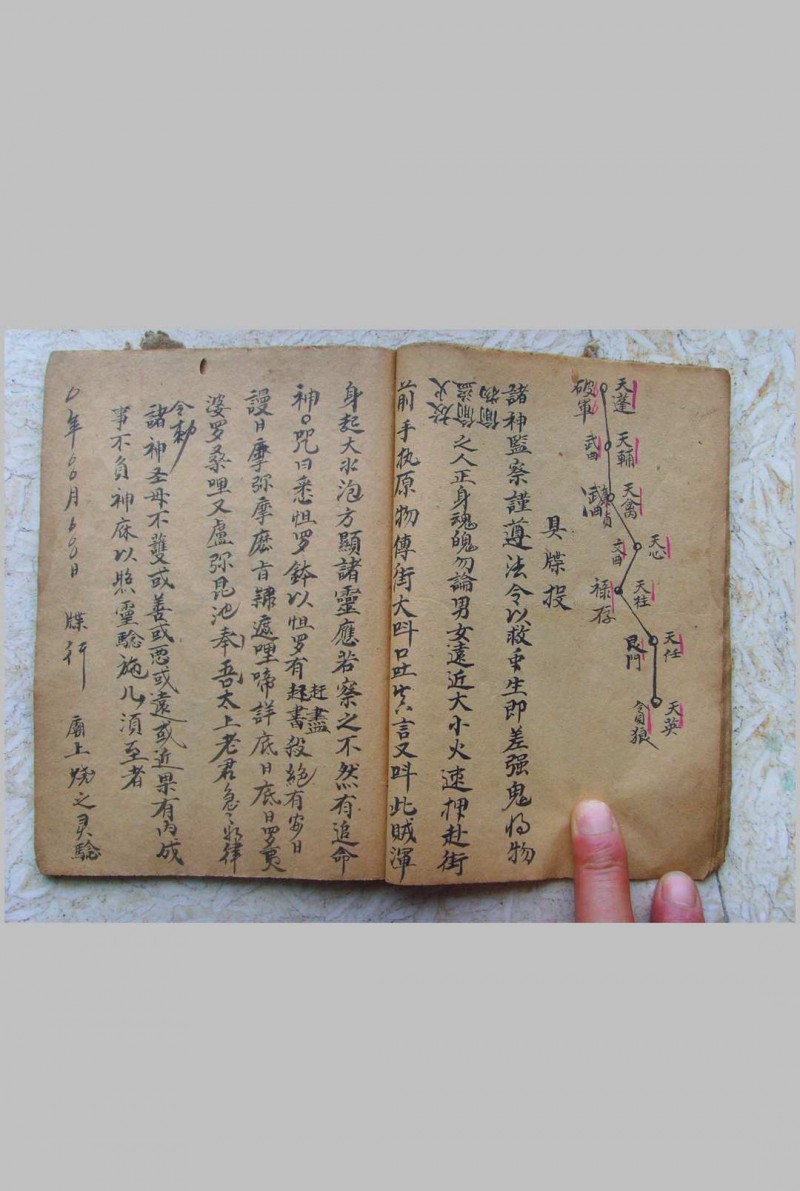 天蓬
破軍
天輔
武曲
天禽
廉貞
天心
文曲
天柱
祿存
天任
門
天英
狼
具牒投
諸神監察謹遵法令以救重生即差强鬼將物
偷物
偷盜
放火
之人正身魂魄勿論男女遠近大小火速押赴街
前手执原物傳街大叫口吐真言又叫此賊渾
身起大水泡方顯諸靈應若察之不然有追命
神〇咒曰悉怛罗鉢以怛罗有
赶盡
赶書
殺絕有安日
謾日摩弥摩麽肯隸遮哩啼詳底日底日罗夷
婆罗桑哩又盧弥昆池奉吾太上老君急々如律
令勅
諸神圣母不護或善或恶或遠或近果有丙成
事不負神庥以照靈驗施儿須至者
〇年〇〇月〇〇日 牒行 廟上燒之灵驗